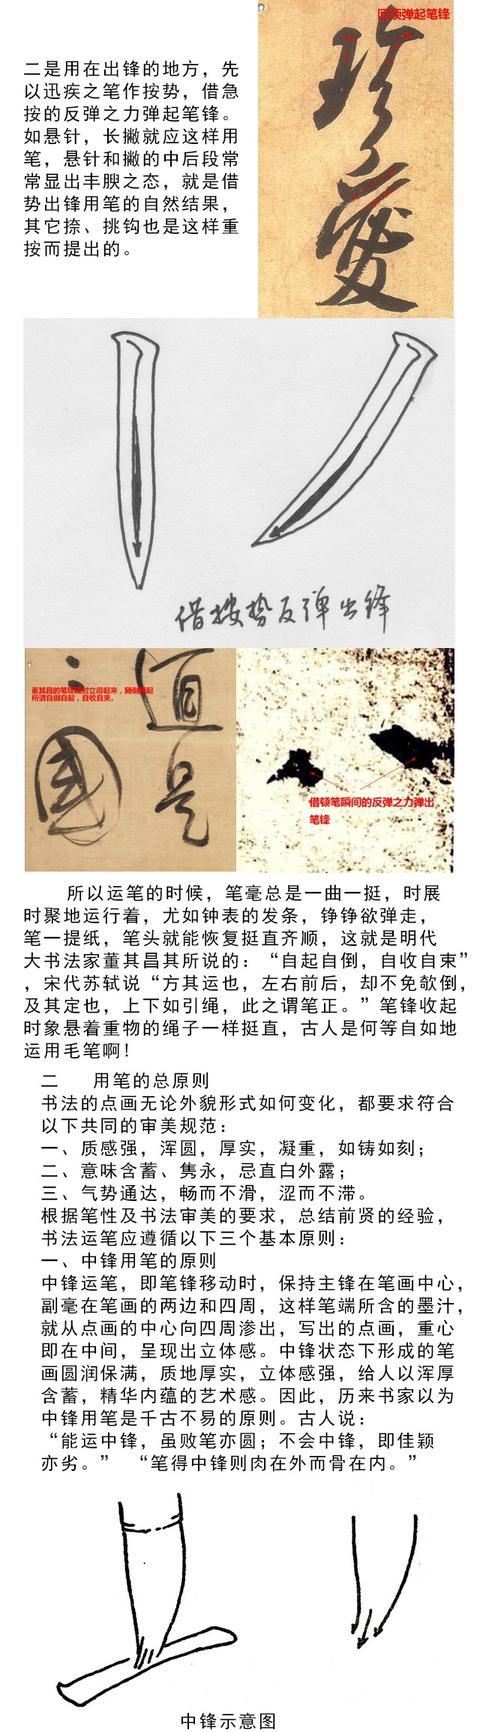 回顶弹起笔锋
二是用在出锋的地方，先
以迅疾之笔作按势，借急
按的反弹之力弹起笔锋。
如悬针，长撇就应这样用
笔，悬针和撇的中后段常
常显出丰腴之态，就是借
势出锋用笔的自然结果，
其它捺、挑钩也是这样重
按而提出的。
珍
爱
借按势反弹出锋
道
是
国
所谓自倒自起，自收自束。
借顿笔瞬间的反弹之力弹出
笔锋
所以运笔的时候，笔毫总是一曲一挺，时展
时聚地运行着，尤如钟表的发条，铮铮欲弹走，
笔一提纸，笔头就能恢复挺直齐顺，这就是明代
大书法家董其昌其所说的：“自起自倒，自收自束”
，宋代苏轼说“方其运也，左右前后，却不免欹倒，
及其定也，上下如引绳，此之谓笔正。”笔锋收起
时象悬着重物的绳子一样挺直，古人是何等自如地
运用毛笔啊!
二 用笔的总原则
书法的点画无论外貌形式如何变化，都要求符合
以下共同的审美规范：
一、质感强，浑圆，厚实，凝重，如铸如刻；
二、意味含蓄、隽永，忌直白外露；
三、气势通达，畅而不滑，涩而不滞。
根据笔性及书法审美的要求，总结前贤的经验，
书法运笔应遵循以下三个基本原则：
一、中锋用笔的原则
中锋运笔，即笔锋移动时，保持主锋在笔画中心，
副毫在笔画的两边和四周，这样笔端所含的墨汁，
就从点画的中心向四周渗出，写出的点画，重心
即在中间，呈现出立体感。中锋状态下形成的笔
画圆润保满，质地厚实，立体感强，给人以浑厚
含蓄，精华内蕴的艺术感。因此，历来书家以为
中锋用笔是千古不易的原则。古人说：
“能运中锋，虽败笔亦圆；不会中锋，即佳颖
亦劣。” “笔得中锋则肉在外而骨在内。”
中锋示意图